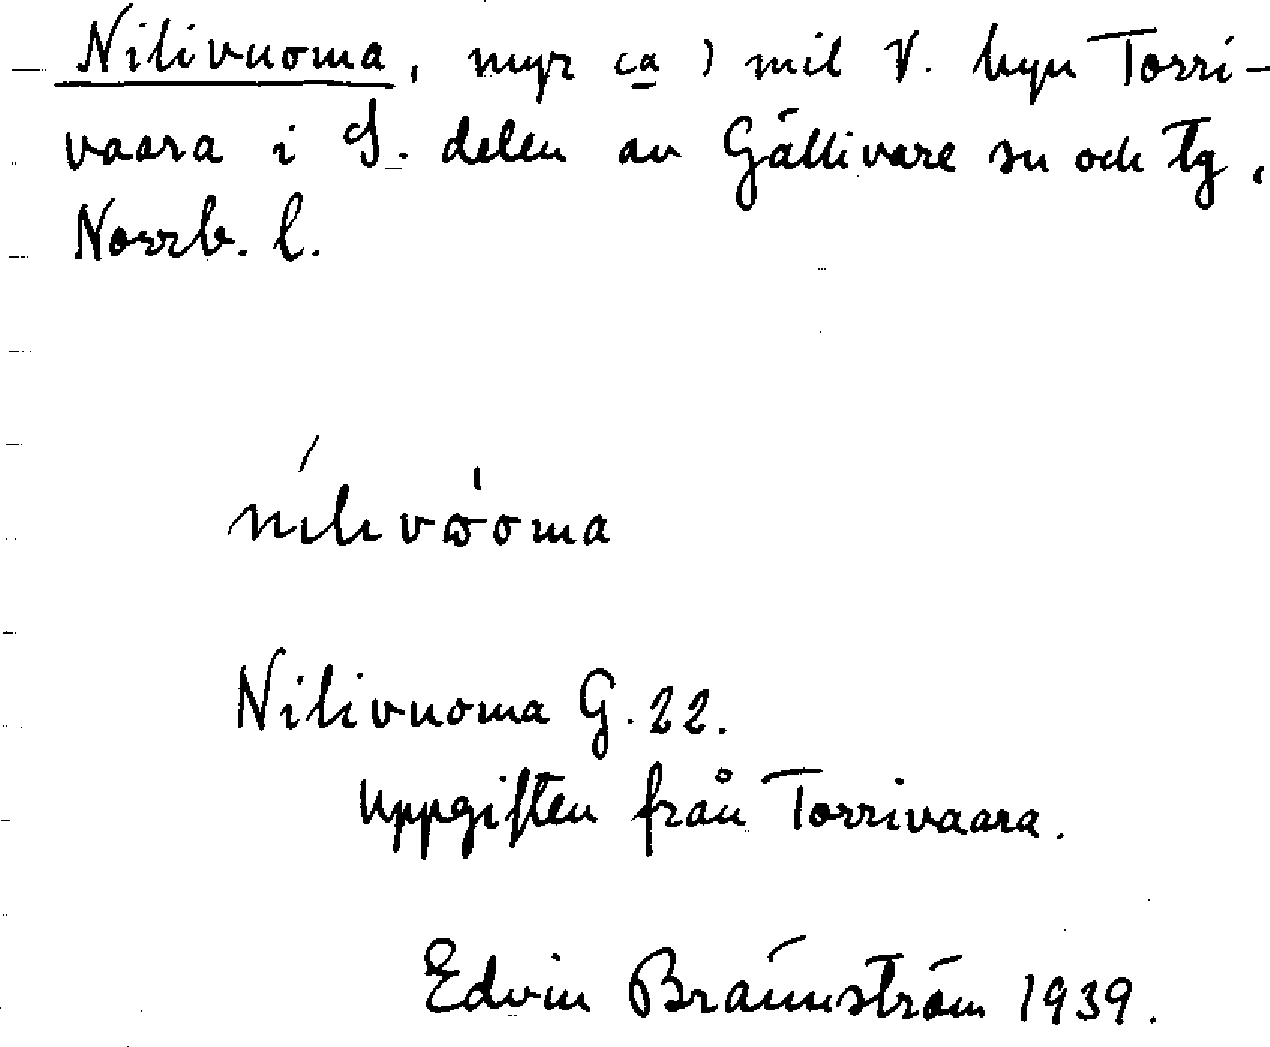 Nilivuoma, myr ca 1 mil V. byn Torri-
vaara i S. delen av Gällivare sn och tg,
Norrb. l.
Nilivuoma G. 22.
Uppgiften från Torrivaara.
Edvin Brännström 1939.